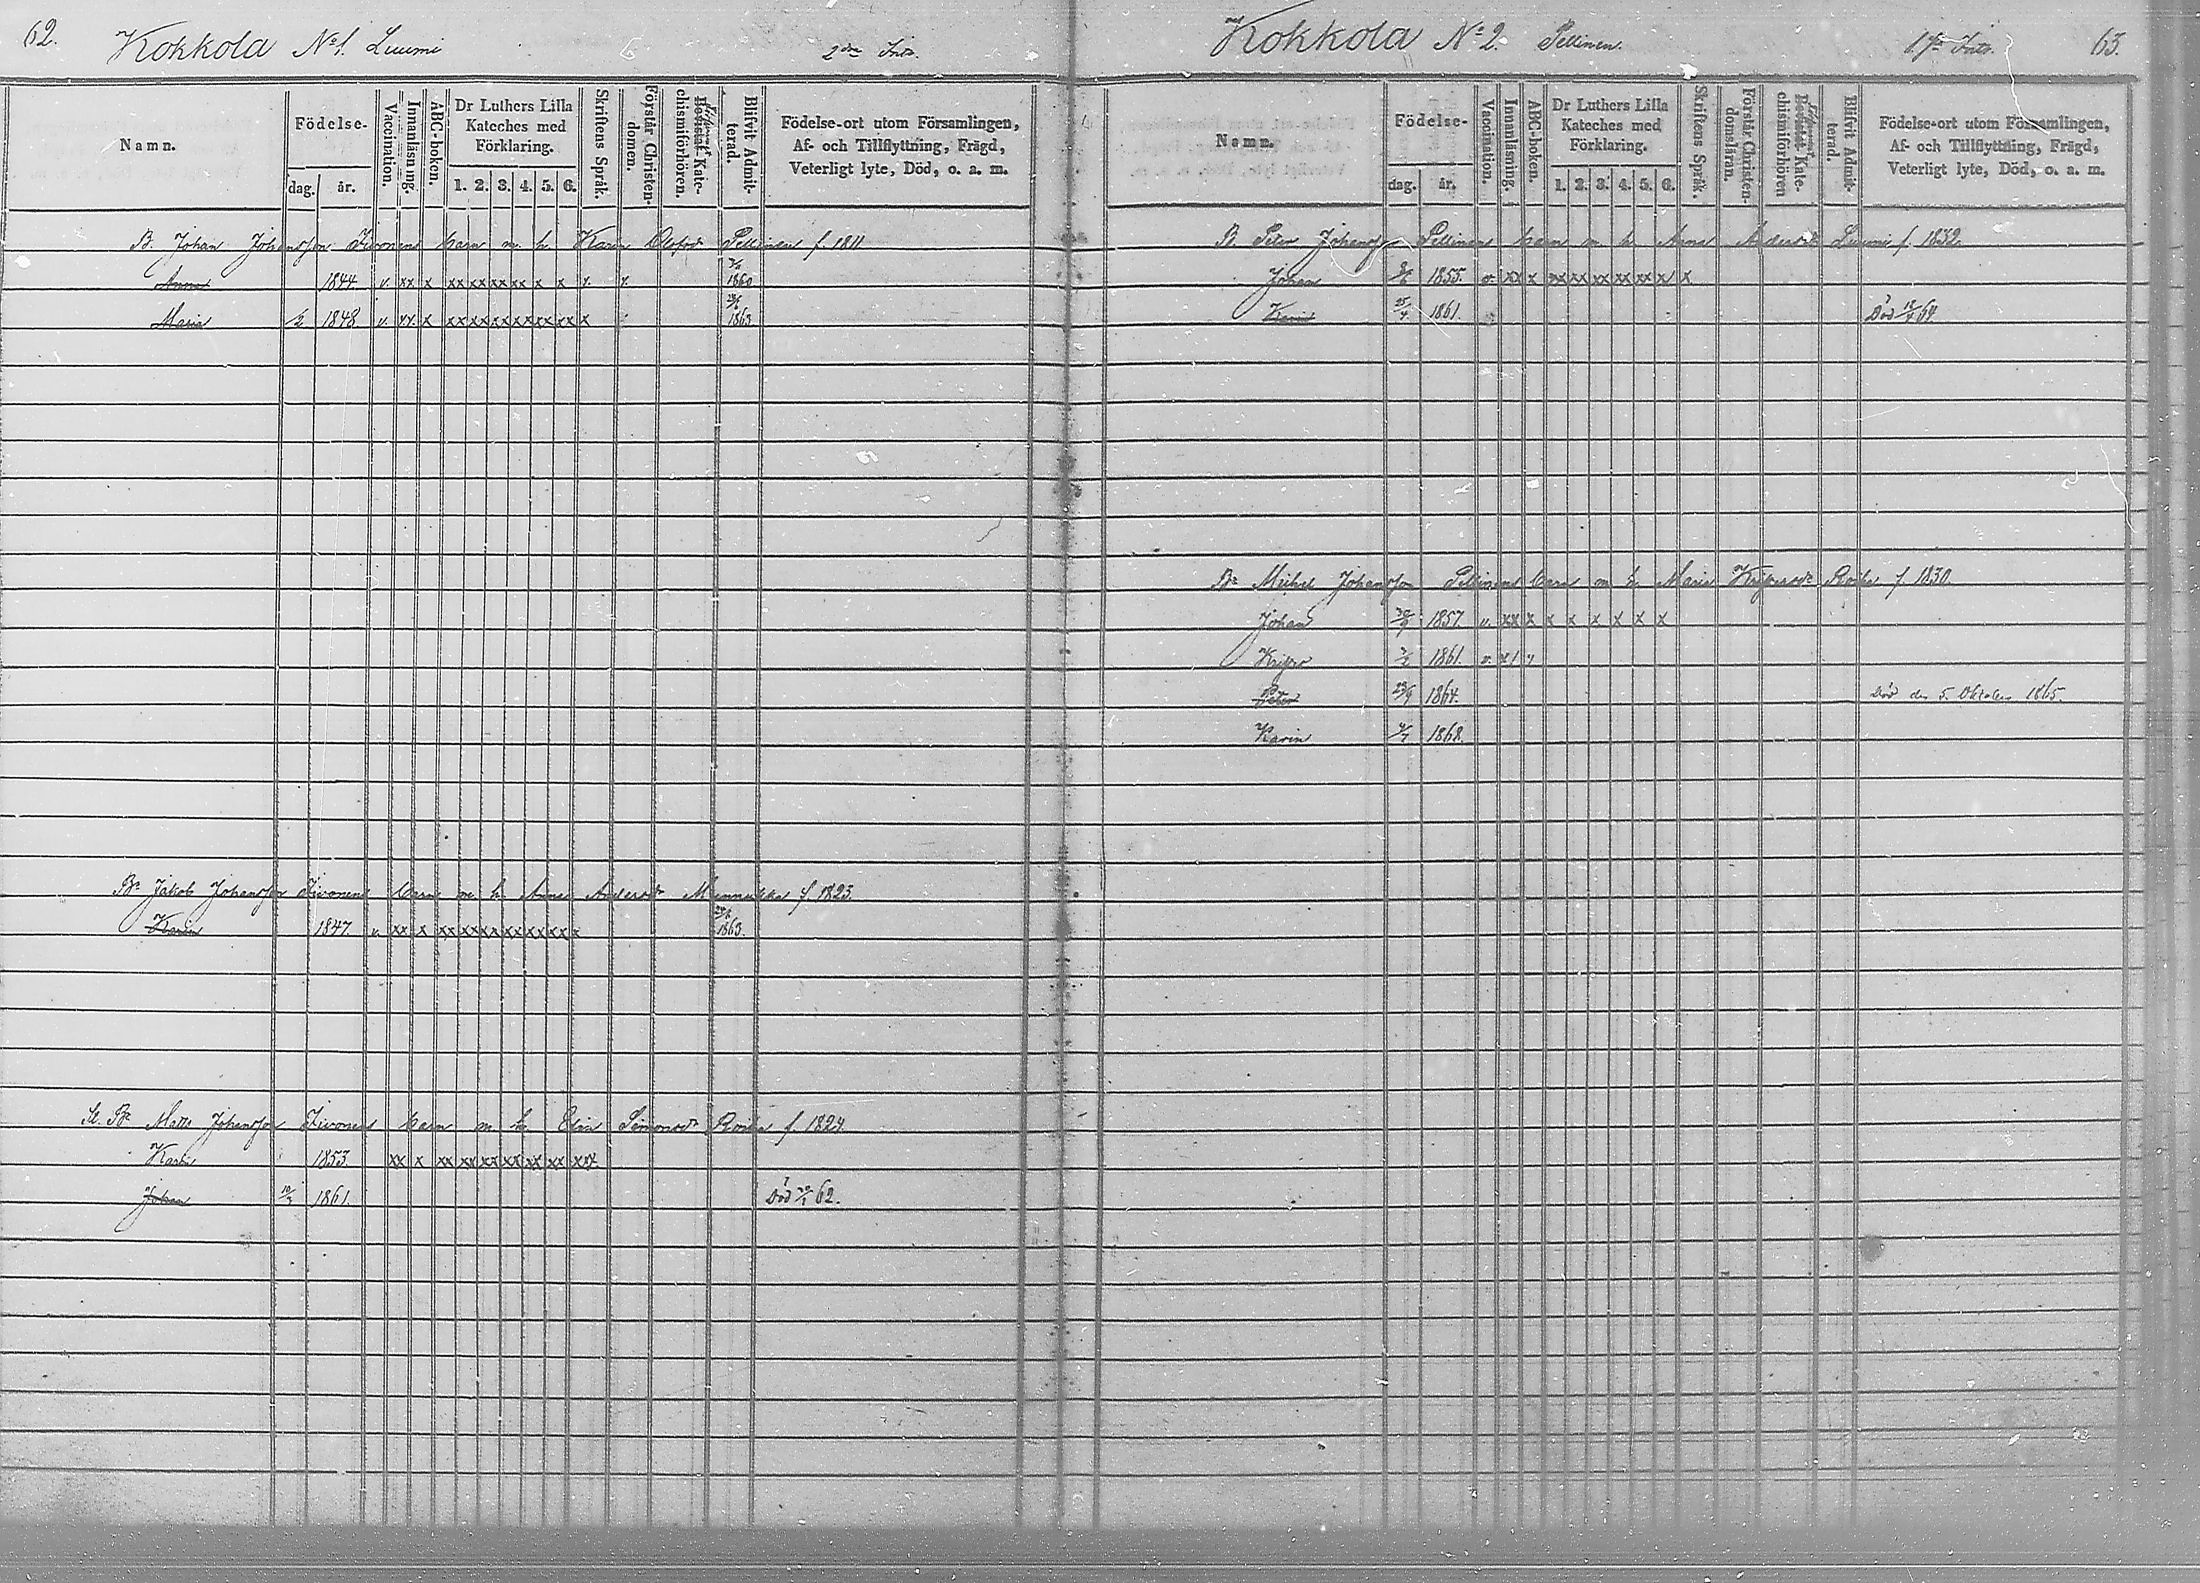 62. Kokkola No 1. Luumi 2dra Ints.
Namn.
Födelse-
dag. år.
Vaccination.
Innanläsning.
ABC-boken.
Dr Luthers Lilla Kateches med Förklaring.
1. 2. 3. 4. 5. 6.
Skriftens Språk.
Förstår Christendomen.
Kate-chismiförhören.
Blifvit Admitterad.
Födelse-ort utom Församlingen,
Af- och Tillflyttning, Frägd,
Veterligt lyte, Död, o. a. m.
B. Johan Johansson barn m. h. Karin Olofsdr Pellinen f. 1811
Anna 1844. v. xx x xx xx xx xx x x 1860
Maria 1848. v. xx. x xx xx xx xx xx xx x 1863
Bn Jakob Johansson barn m h Anna Andersdr f. 1823.
Karin 1847. v. xx x xx xx xx xx xx x 1863.
Bn Matts Johansson barn m h. Elin Simonsdr Roika f. 1824.
Karin 1853. xx x xx xx xx xx xx xx
Johan 1861. Död 62.
Kokkola No 2. Pellinen. 63.
Namn.
Födelse-
dag. år.
Vaccination.
Innanläsning.
ABC-boken.
Dr Luthers Lilla Kateches med Förklaring.
1. 2. 3. 4. 5. 6.
Skriftens Språk.
Förstår Christendomsläran.
Kate-chismiförhören
Blifvit Admitterad.
Födelse-ort utom Församlingen,
Af- och Tillflyttning, Frägd,
Veterligt lyte, Död, o. a. m.
B. Peter Johansson Pellinens barn m h Anna Andersdr Luumi f. 1832.
Johan 1855. v. xx x xx xx xx xx xx x x
Karin 25/4 1861. Död 64.
Bn Michel Johansson Pellinens barn m h Maria Roika f. 1830.
Johan 1857. v. xx x x x x x x x
1861. v.
Peter 1864. Död den 5. Oktober 1865.
Karin 1868.